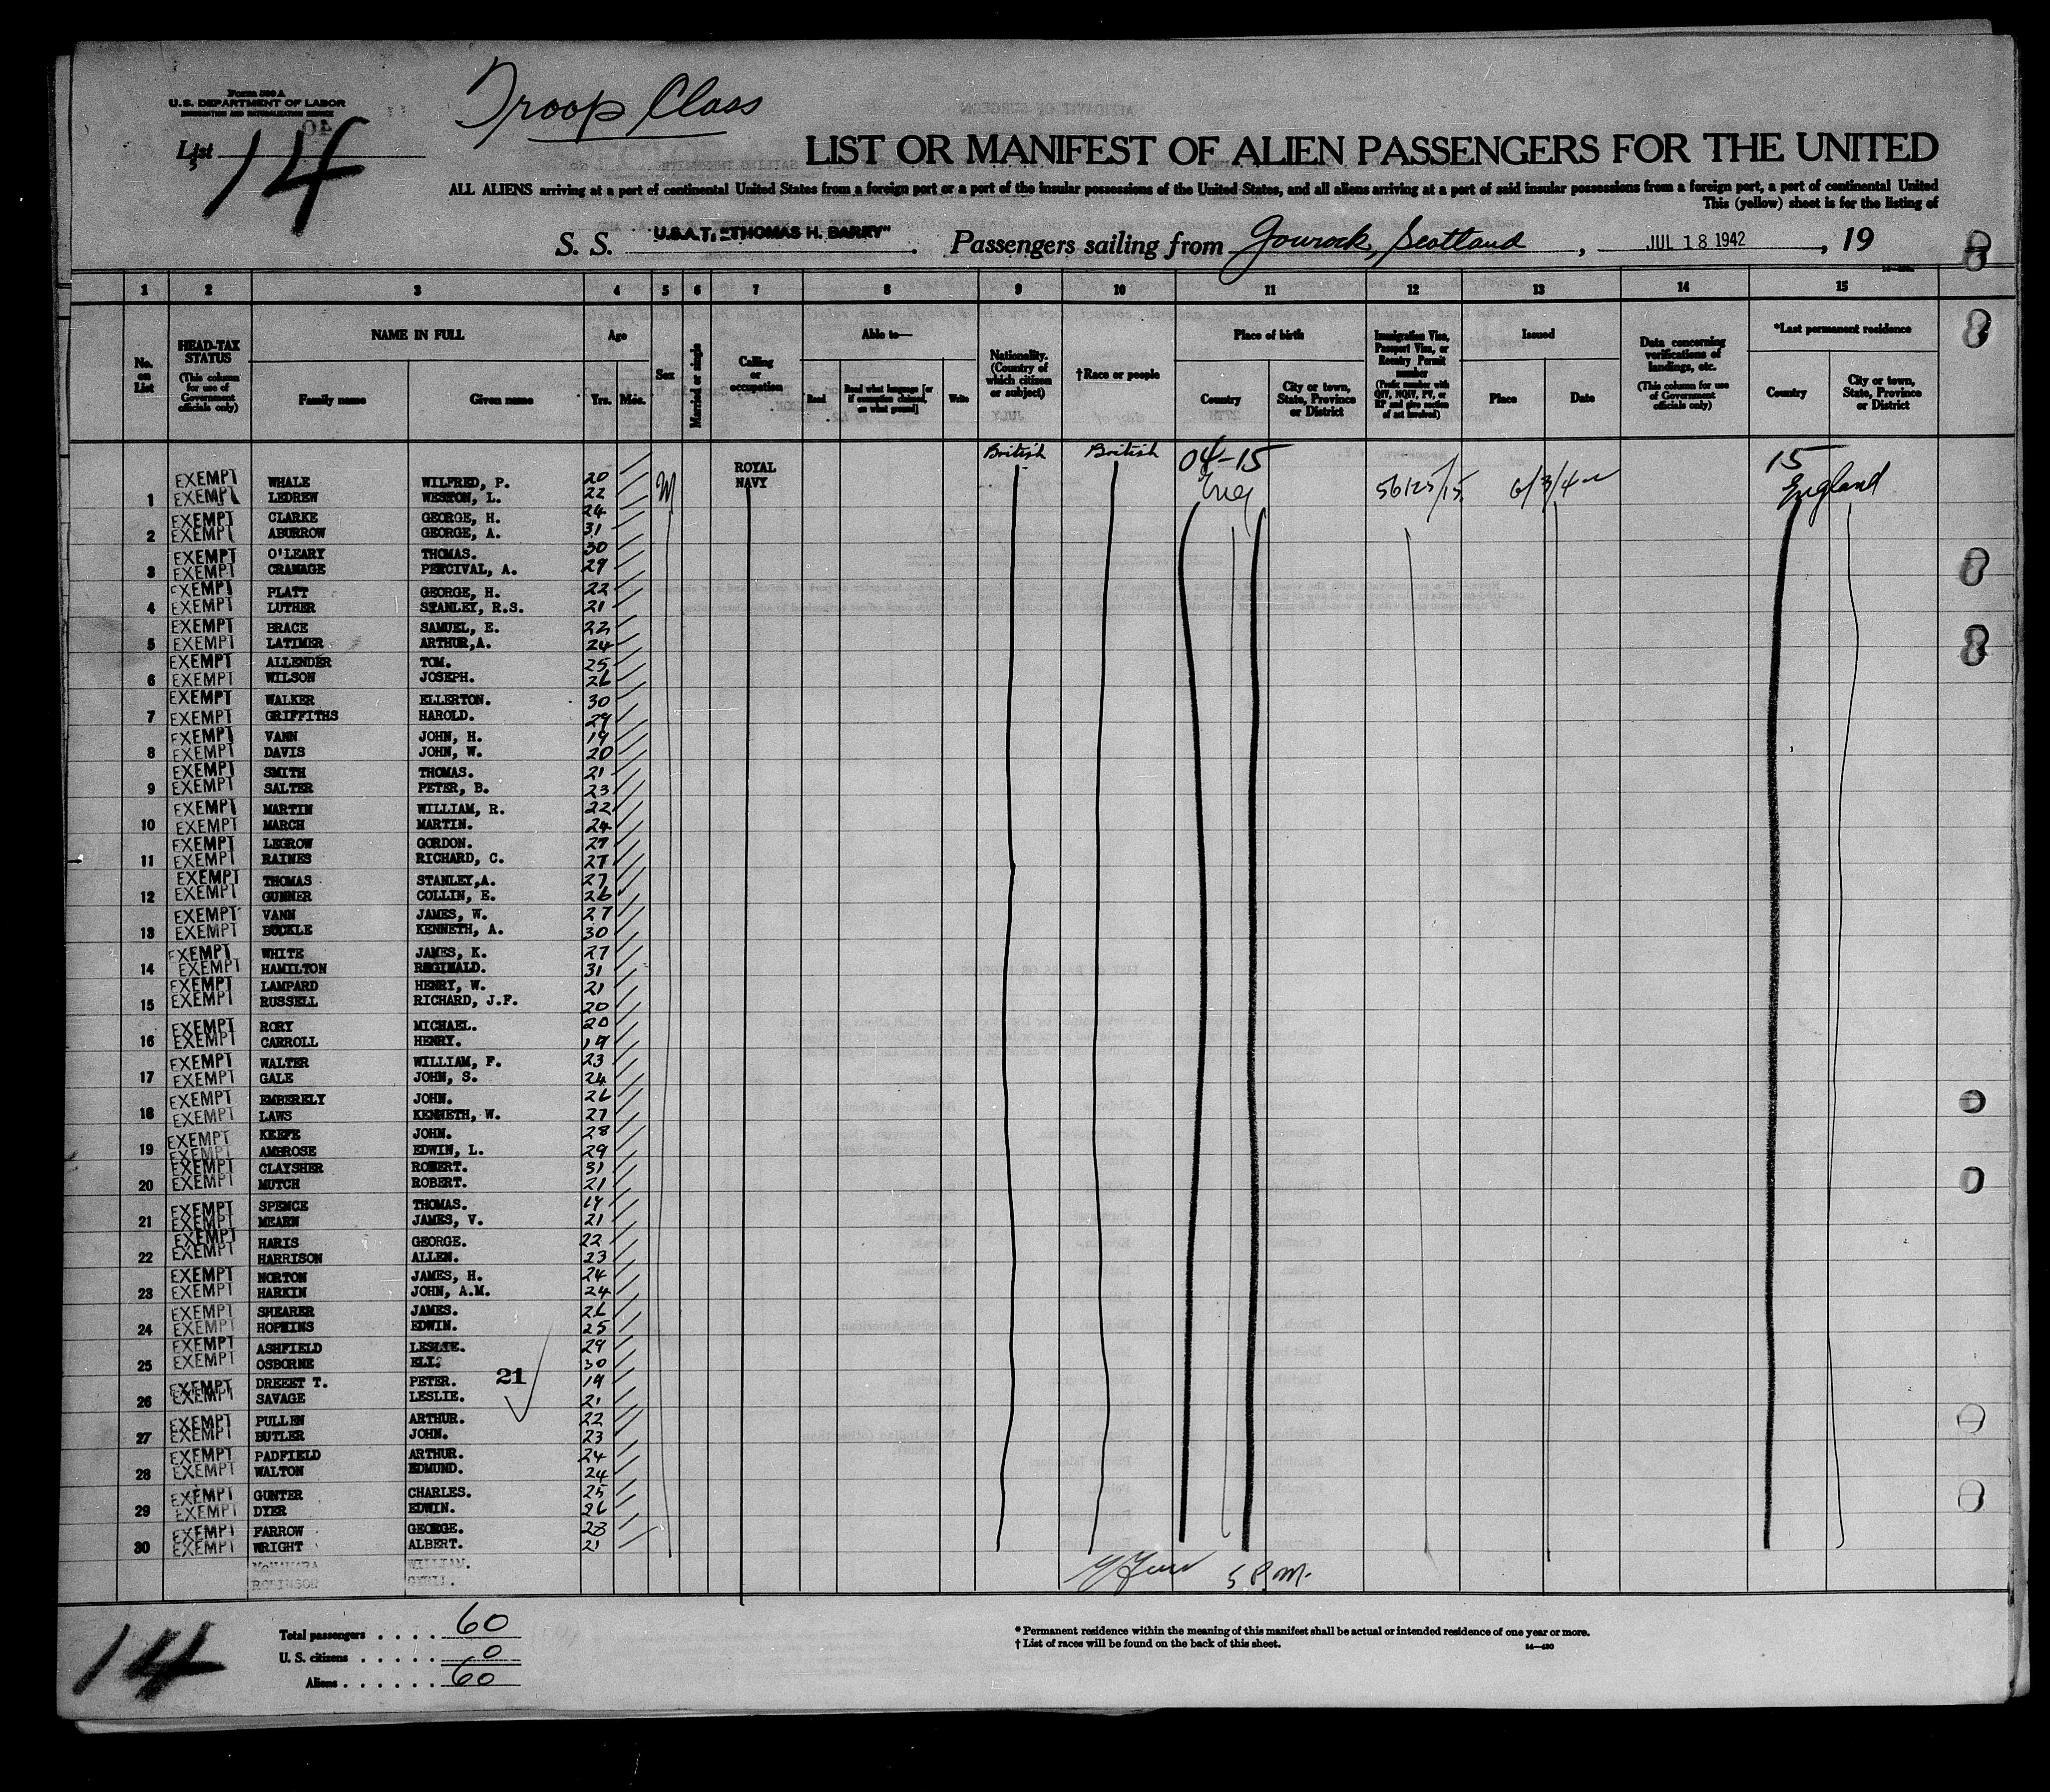 Form 500 A
U.S. DEPARTMENT OF LABOR
IMMIGRATION AND NATURALIZATION SERVICE
Troop Class
List 14
LIST OR MANIFEST OF ALIEN PASSENGERS FOR THE UNITED
ALL ALIENS arriving at a port of continental United States from a foreign port or a port of the insular possessions of the United States, and all aliens arriving at a port of said insular possessions from a foreign port, a port of continental United
This (yellow) sheet is for the listing of
S. S. U.S.A.T. "THOMAS H. BARRY" Passengers sailing from Gourock, Scotland, JUL 18 1942, 19
1 2 3 4 5 6 7 8 9 10 11 12 13 14 15
No. on List
HEAD-TAX STATUS (This column for use of Government officials only)
NAME IN FULL Family name Given name
Age Yrs. Mos.
Sex
Married or single
Calling or occupation
Able to— Read Read what language [or if exemption claimed, on what ground] Write
Nationality. (Country of which citizen or subject)
†Race or people
Place of birth Country City or town, State, Province or District
Immigration Visa, Passport Visa, or Reentry Permit number (Prefix number with QIV, NQIV, PV, or RP and give section of act involved)
Issued Place Date
Data concerning verifications of landings, etc. (This column for use of Government officials only)
*Last permanent residence Country City or town, State, Province or District
British British 04-15 15
EXEMPT WHALE WILFRED, P. 20 M ROYAL NAVY Eng 56125/15 6/3/42 England
1 EXEMPT LEDREW WESTON, L. 22
EXEMPT CLARKE GEORGE, H. 24
2 EXEMPT ABURROW GEORGE, A. 31
EXEMPT O'LEARY THOMAS. 30
3 EXEMPT CRAMAGE PERCIVAL, A. 29
EXEMPT PLATT GEORGE, H. 22
4 EXEMPT LUTHER STANLEY, R.S. 21
EXEMPT BRACE SAMUEL, E. 22
5 EXEMPT LATIMER ARTHUR,A. 24
EXEMPT ALLENDER TOM. 25
6 EXEMPT WILSON JOSEPH. 26
EXEMPT WALKER ELLERTON. 30
7 EXEMPT GRIFFITHS HAROLD. 29
EXEMPT VANN JOHN, H. 19
8 EXEMPT DAVIS JOHN, W. 20
EXEMPT SMITH THOMAS. 21
9 EXEMPT SALTER PETER, B. 23
EXEMPT MARTIN WILLIAM, R. 22
10 EXEMPT MARCH MARTIN. 24
EXEMPT LEGROW GORDON. 27
11 EXEMPT RAINES RICHARD, C. 27
EXEMPT THOMAS STANLEY,A. 27
12 EXEMPT GUNNER COLLIN, E. 26
EXEMPT VANN JAMES, W. 27
13 EXEMPT BUCKLE KENNETH, A. 30
EXEMPT WHITE JAMES, K. 27
14 EXEMPT HAMILTON REGINALD. 31
EXEMPT LAMPARD HENRY, W. 21
15 EXEMPT RUSSELL RICHARD, J.F. 20
EXEMPT RORY MICHAEL. 20
16 EXEMPT CARROLL HENRY. 19
EXEMPT WALTER WILLIAM, F. 23
17 EXEMPT GALE JOHN, S. 24
EXEMPT EMBERELY JOHN. 26
18 EXEMPT LAWS KENNETH, W. 27
EXEMPT KEEFE JOHN. 28
19 EXEMPT AMBROSE EDWIN, L. 29
EXEMPT CLAYSHER ROBERT. 31
20 EXEMPT MUTCH ROBERT. 21
EXEMPT SPENCE THOMAS. 19
21 EXEMPT MEARN JAMES, V. 21
EXEMPT HARIS GEORGE. 22
22 EXEMPT HARRISON ALLEN. 23
EXEMPT NORTON JAMES, H. 24
23 EXEMPT HARKIN JOHN, A.M. 24
EXEMPT SHEARER JAMES. 26
24 EXEMPT HOPKINS EDWIN. 25
EXEMPT ASHFIELD LESLIE. 29
25 EXEMPT OSBORNE ELI. 30
21
EXEMPT DREEET T. PETER. 19
26 EXEMPT SAVAGE LESLIE. 21
EXEMPT PULLEN ARTHUR. 22
27 EXEMPT BUTLER JOHN. 23
EXEMPT PADFIELD ARTHUR. 24
28 EXEMPT WALTON EDMUND. 24
EXEMPT GUNTER CHARLES. 25
29 EXEMPT DYER EDWIN. 26
EXEMPT FARROW GEORGE. 28
30 EXEMPT WRIGHT ALBERT. 21
McNAMARA WILLIAM.
ROBINSON CYRIL.
5 P.M.
14
Total passengers . . . . 60
U. S. citizens . . . . . 0
Aliens . . . . . . 60
* Permanent residence within the meaning of this manifest shall be actual or intended residence of one year or more.
† List of races will be found on the back of this sheet.
14—430